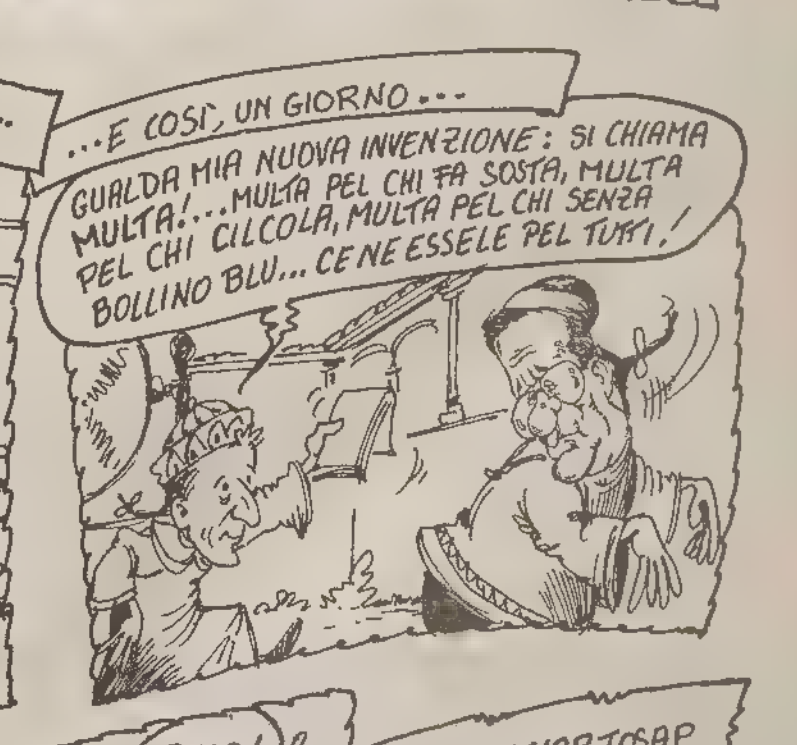 ...E COSÌ, UN GIORNO...
GUALDA MIA NUOVA INVENZIONE: SI CHIAMA
MULTA!...MULTA PEL CHI FA SOSTA, MULTA
PEL CHI CILCOLA, MULTA PEL CHI SENZA
BOLLINO BLU... CE NE ESSELE PEL TUTTI!